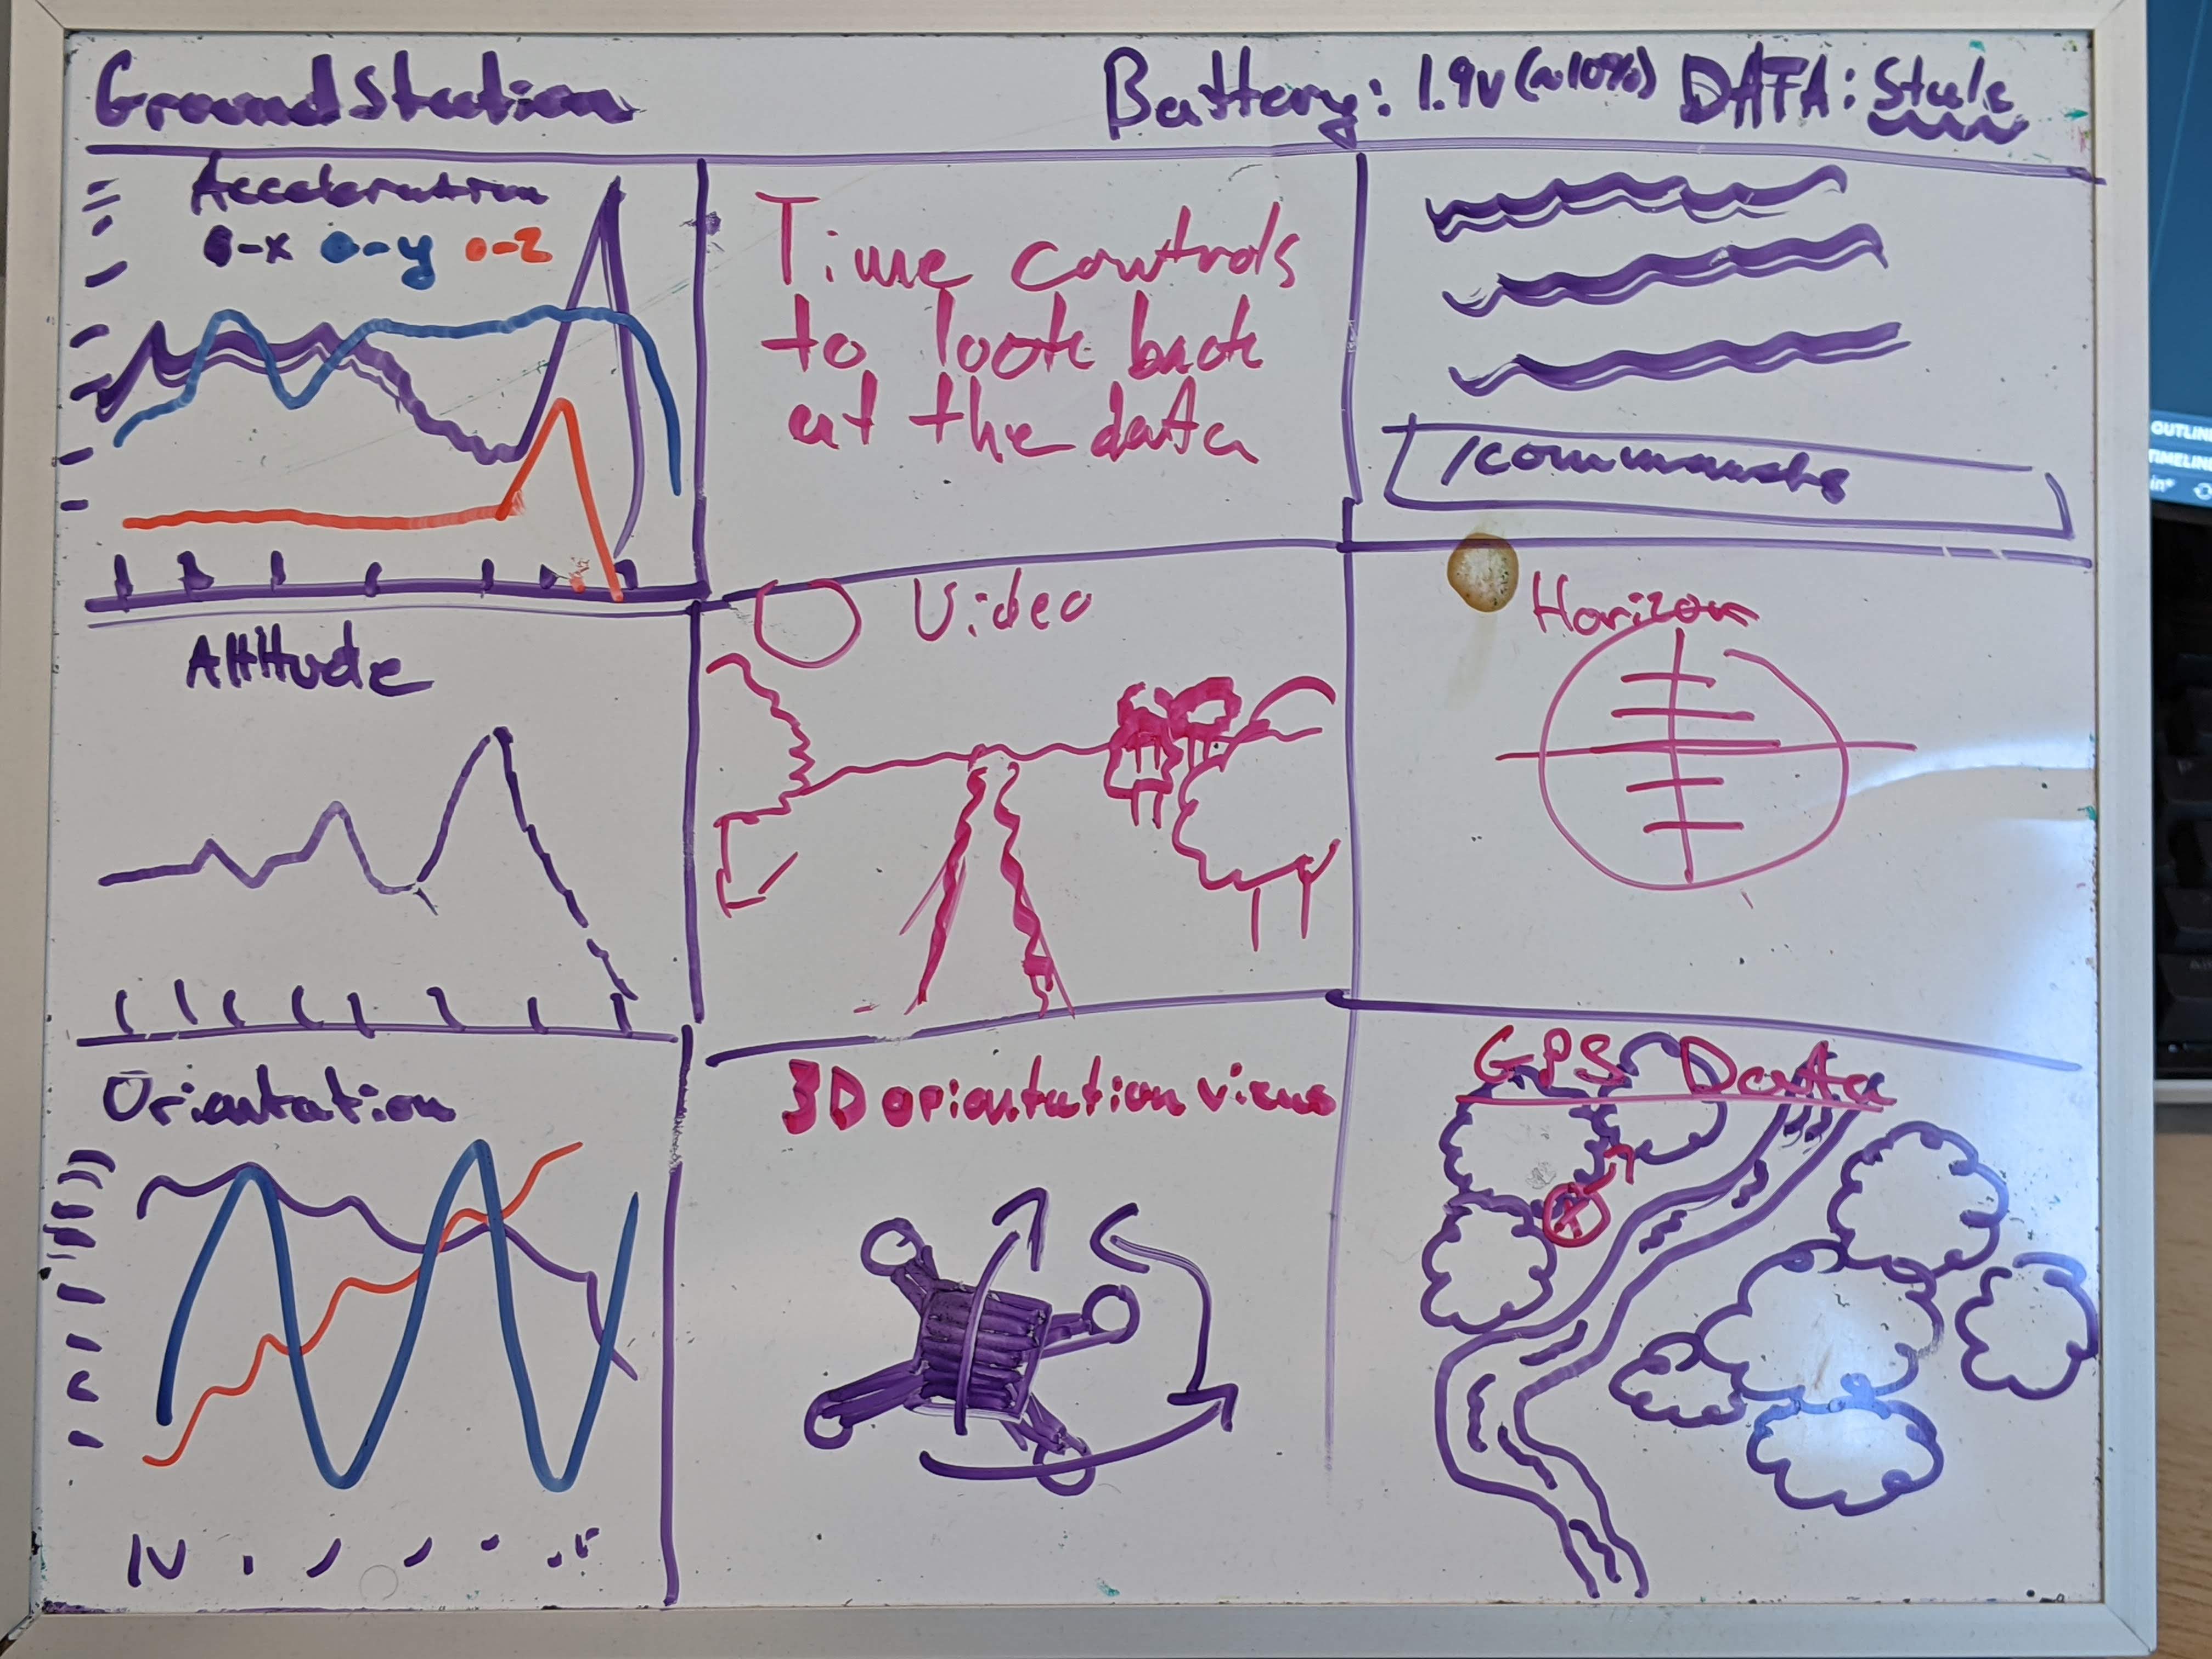 Ground Station
Battery: 1.9v (~10%) DATA: Stale
Acceleration
-x -y -z
Time controls
to look back
at the data
/commands
Altitude
Video
Horizon
Orientation
3D orientation views
GPS Data
OUTLINE
TIMELINE